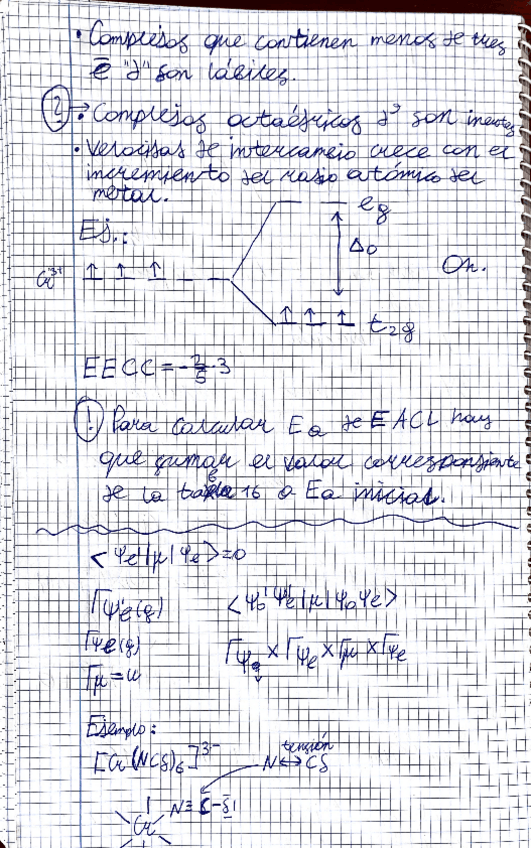 • Complejos que contienen menos de tres
ē "d" son lábiles.
② → • Complejos octaédricos d³ son inertes
• Velocidad de intercambio crece con el
incremento del radio atómico del
metal.
Ej.:
e_g
Δ₀
Oh.
Cr³⁺ ↑ ↑ ↑ _ _
↑ ↑ ↑ t₂g
EECC = -2/5·3
(!) Para calcular Ea de EACL hay
que sumar el valor correspondiente
de la tabla 16 a Ea inicial.
<Ψe'|μ|Ψe> = 0
ΓΨ'e(g) <Ψ₀'Ψe'|μ|Ψ₀Ψe>
ΓΨe(g)
Γμ = u
Ejemplo:
tensión
[Cr(NCS)₆]³⁻ N↔CS
N≡C-S̄|
Cr